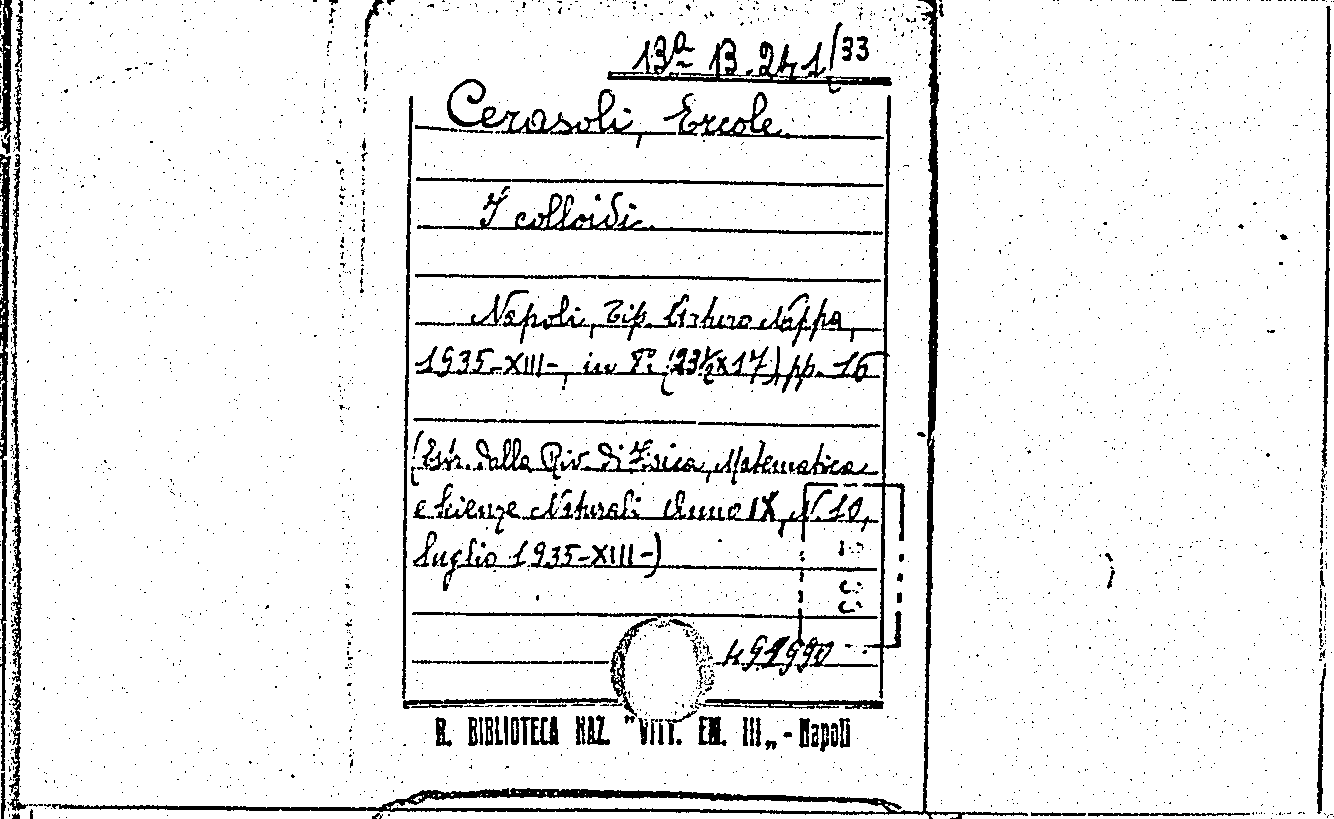 13ª B. 241/33
Cerasoli, Ercole
I colloidi.
Napoli, Tip. Arturo Nappa,
1935-XIII-, in 8º (23½x17) pp. 16
(Estr. dalla Riv. di Fisica, Matematica
e Scienze Naturali Anno IX, N. 10,
luglio 1935-XIII-)
491990
R. BIBLIOTECA NAZ. "VITT. EM. III„ - Napoli